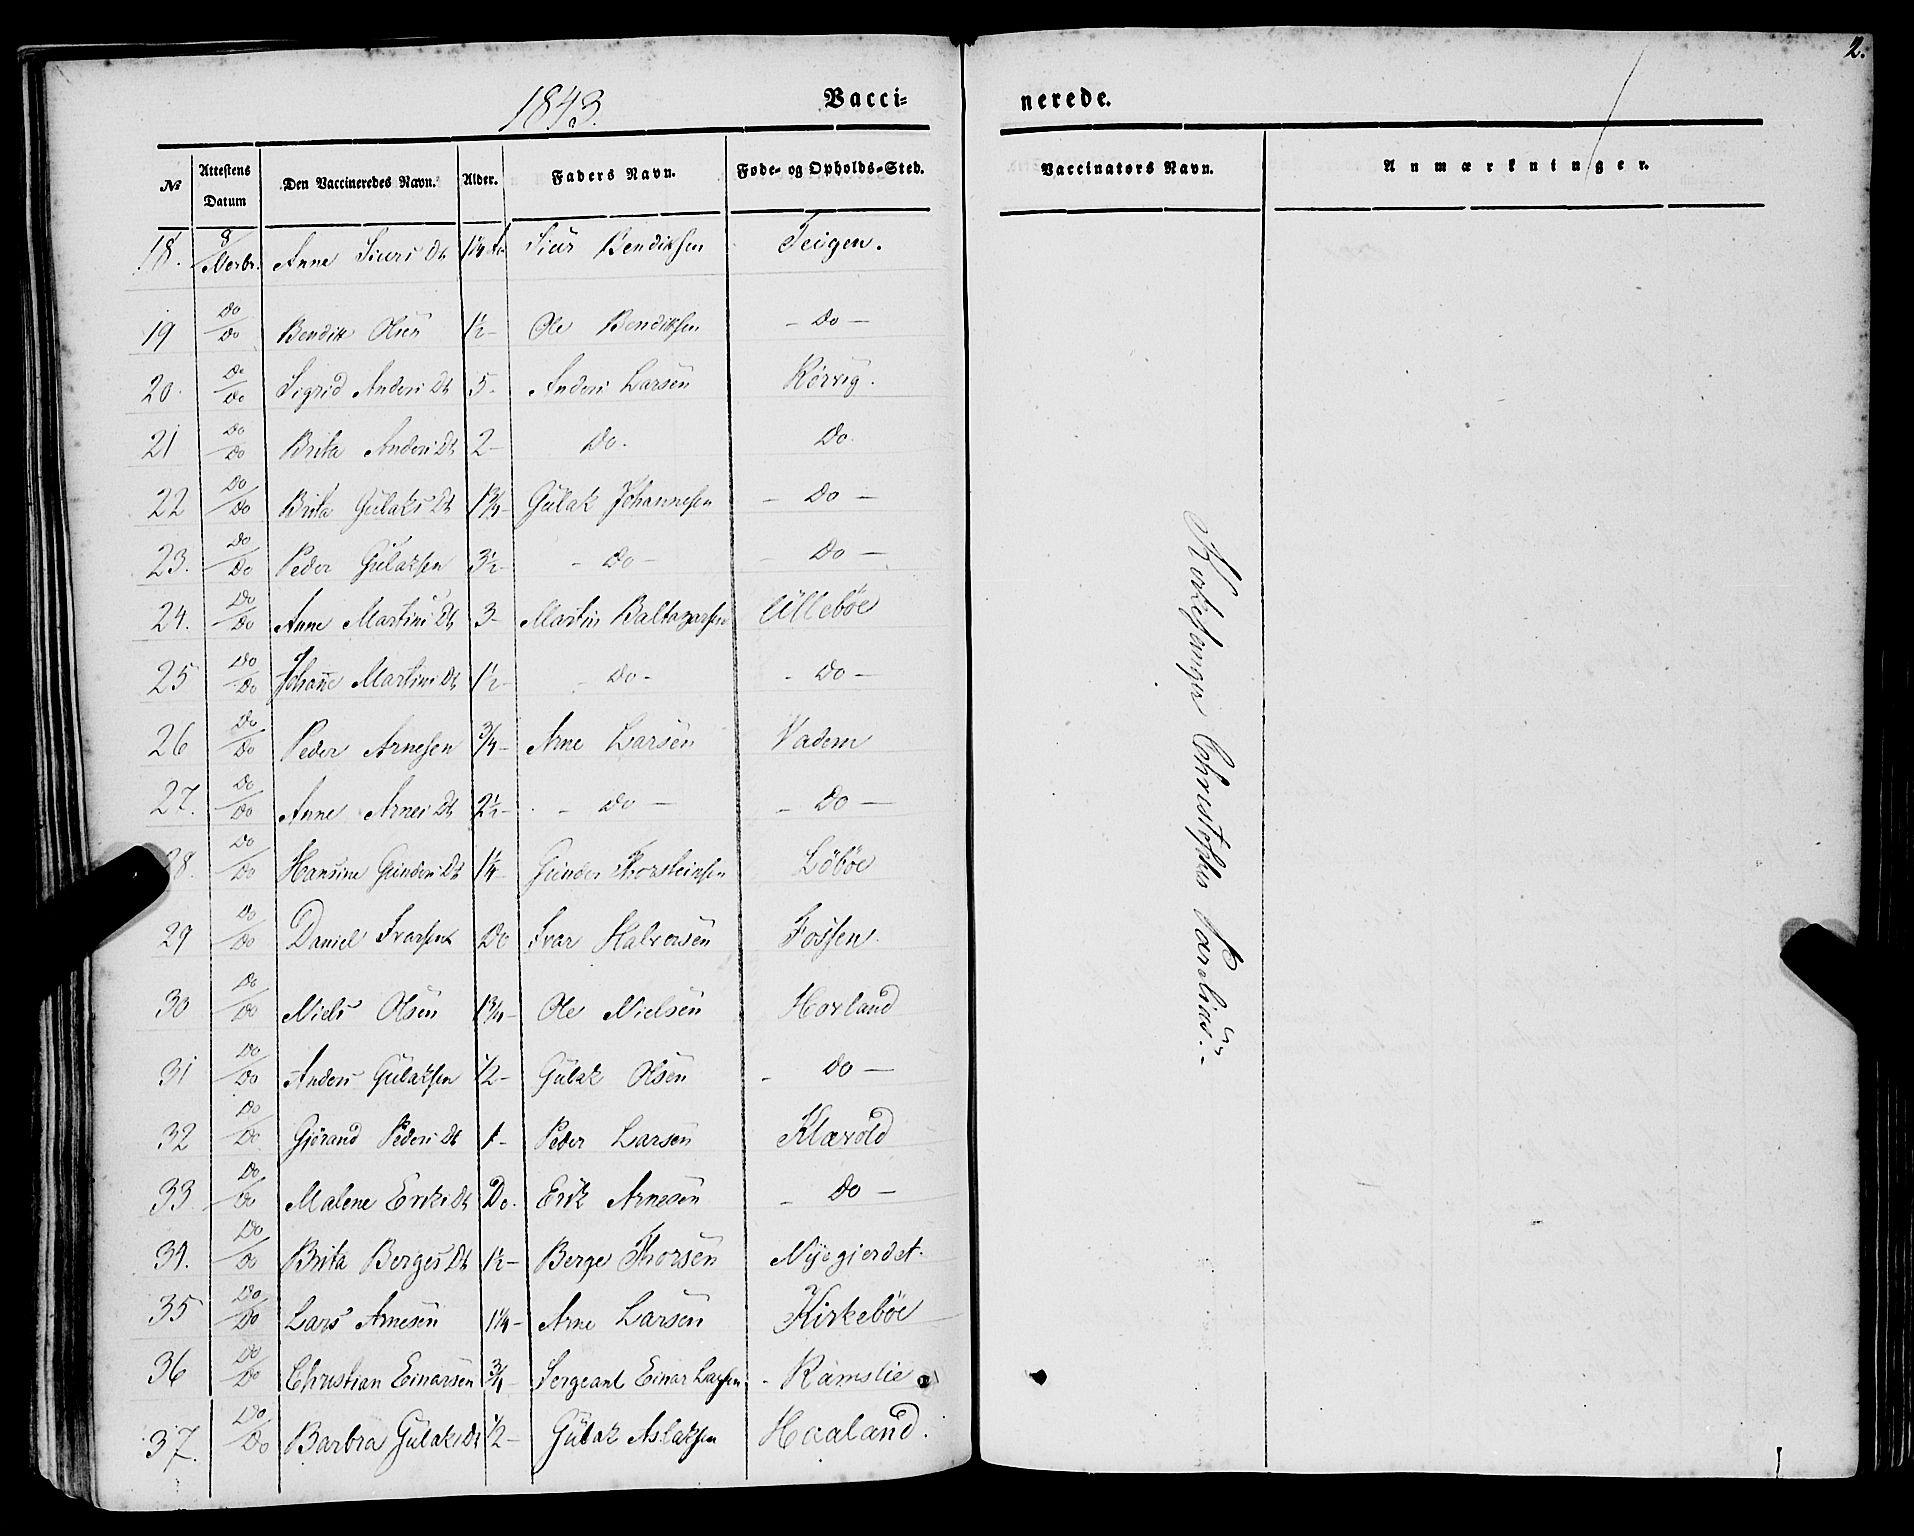 1843.
Vacci-
№ Attestens Datum Den Vaccineredes Navn. Alder. Faders Navn. Føde- og Opholds-Sted.
18. 8/Novbr. Anne Siurs Dt 1¼ Siur Bendiksen Teigen.
19 Do/Do Bendik Olsen 1½- Ole Bendiksen - Do -
20. Do/Do Sigrid Anders Dt 5- Anders Larsen Rørvig.
21 Do/Do Brita Anders Dt 2- Do. Do.
22 Do/Do Brita Gulaks Dt 1¾- Gulak Johannesen - Do -
23. Do/Do Peder Gulaksen 3½- - Do - - Do -
24. Do/Do Anne Martins Dt 3- Martin Baltazarsen Ullebøe
25 Do/Do Johanne Martins Dt 1½- - Do - - Do -
26 Do/Do Peder Arnesen ¾- Arne Larsen Vadem
27. Do/Do Anne Arnes Dt 2½- - Do - - Do -
28. Do/Do Hansine Gunders Dt 1¼- Gunder Thorsteinsen Løbøe
29 Do/Do Daniel Ivarsen Do Ivar Halvorsen Fossen.
30 Do/Do Niels Olsen 1¾- Ole Nielsen Horland
31 Do/Do Anders Gulaksen ½- Gulak Olsen - Do -
32 Do/Do Gjørand Peders Dt 1- Peder Larsen Klævold
33. Do/Do Malene Eriks Dt Do. Erik Arnesen - Do -
34. Do/Do Brita Berges Dt 1½- Berge Thorsen Nyegjerdet.
35 Do/Do Lars Arnesen 1¼- Arne Larsen Kirkebøe
36 Do/Do Christian Einarsen ¾- Sergeant Einar Larsen - Ramslie
37. Do/Do Barbra Gulaks Dt ½- Gulak Aslaksen Haaland.
2.
nerede.
Vaccinators Navn. Anmærkninger.
Kirkesanger Christopher